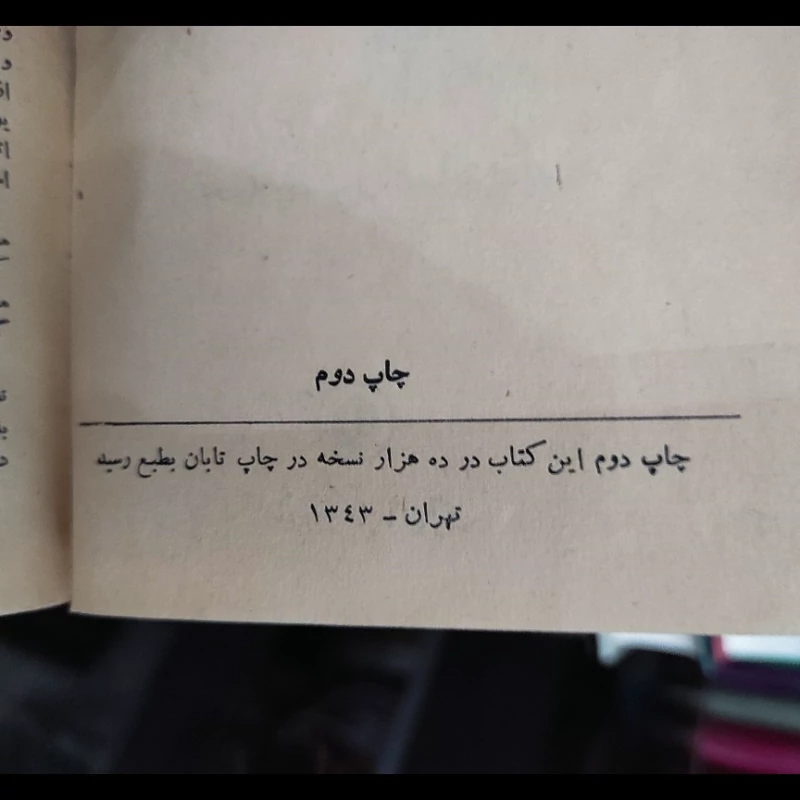 چاپ دوم
چاپ دوم این کتاب در ده هزار نسخه در چاپ تابان بطبع رسید
تهران - ۱۳٤۳